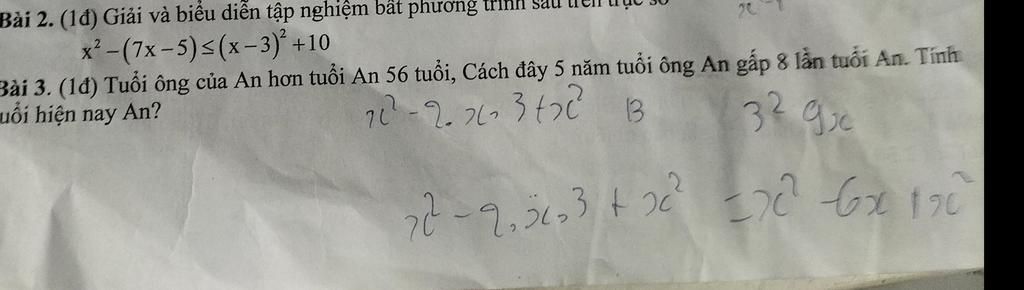 Bài 2. (1đ) Giải và biểu diễn tập nghiệm bất phương trình sau trên trục số
x² – (7x – 5) ≤ (x – 3)² + 10
Bài 3. (1đ) Tuổi ông của An hơn tuổi An 56 tuổi, Cách đây 5 năm tuổi ông An gấp 8 lần tuổi An. Tính
uổi hiện nay An?
x² - 2. x. 3 + x² B 3² 9x
x² - 2. x. 3 + x² = x² - 6x + x²